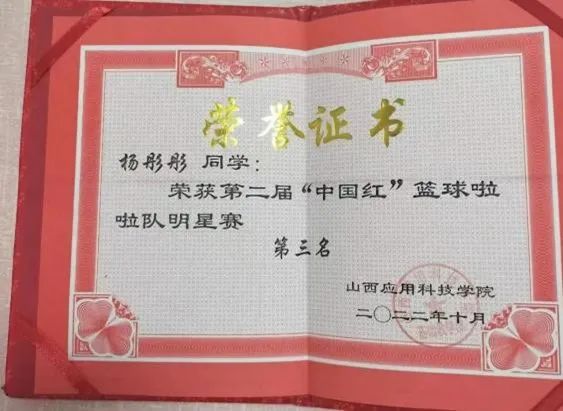 荣誉证书
杨彤彤 同学：
荣获第二届“中国红”篮球啦
啦队明星赛
第三名
山西应用科技学院
二〇二二年十月